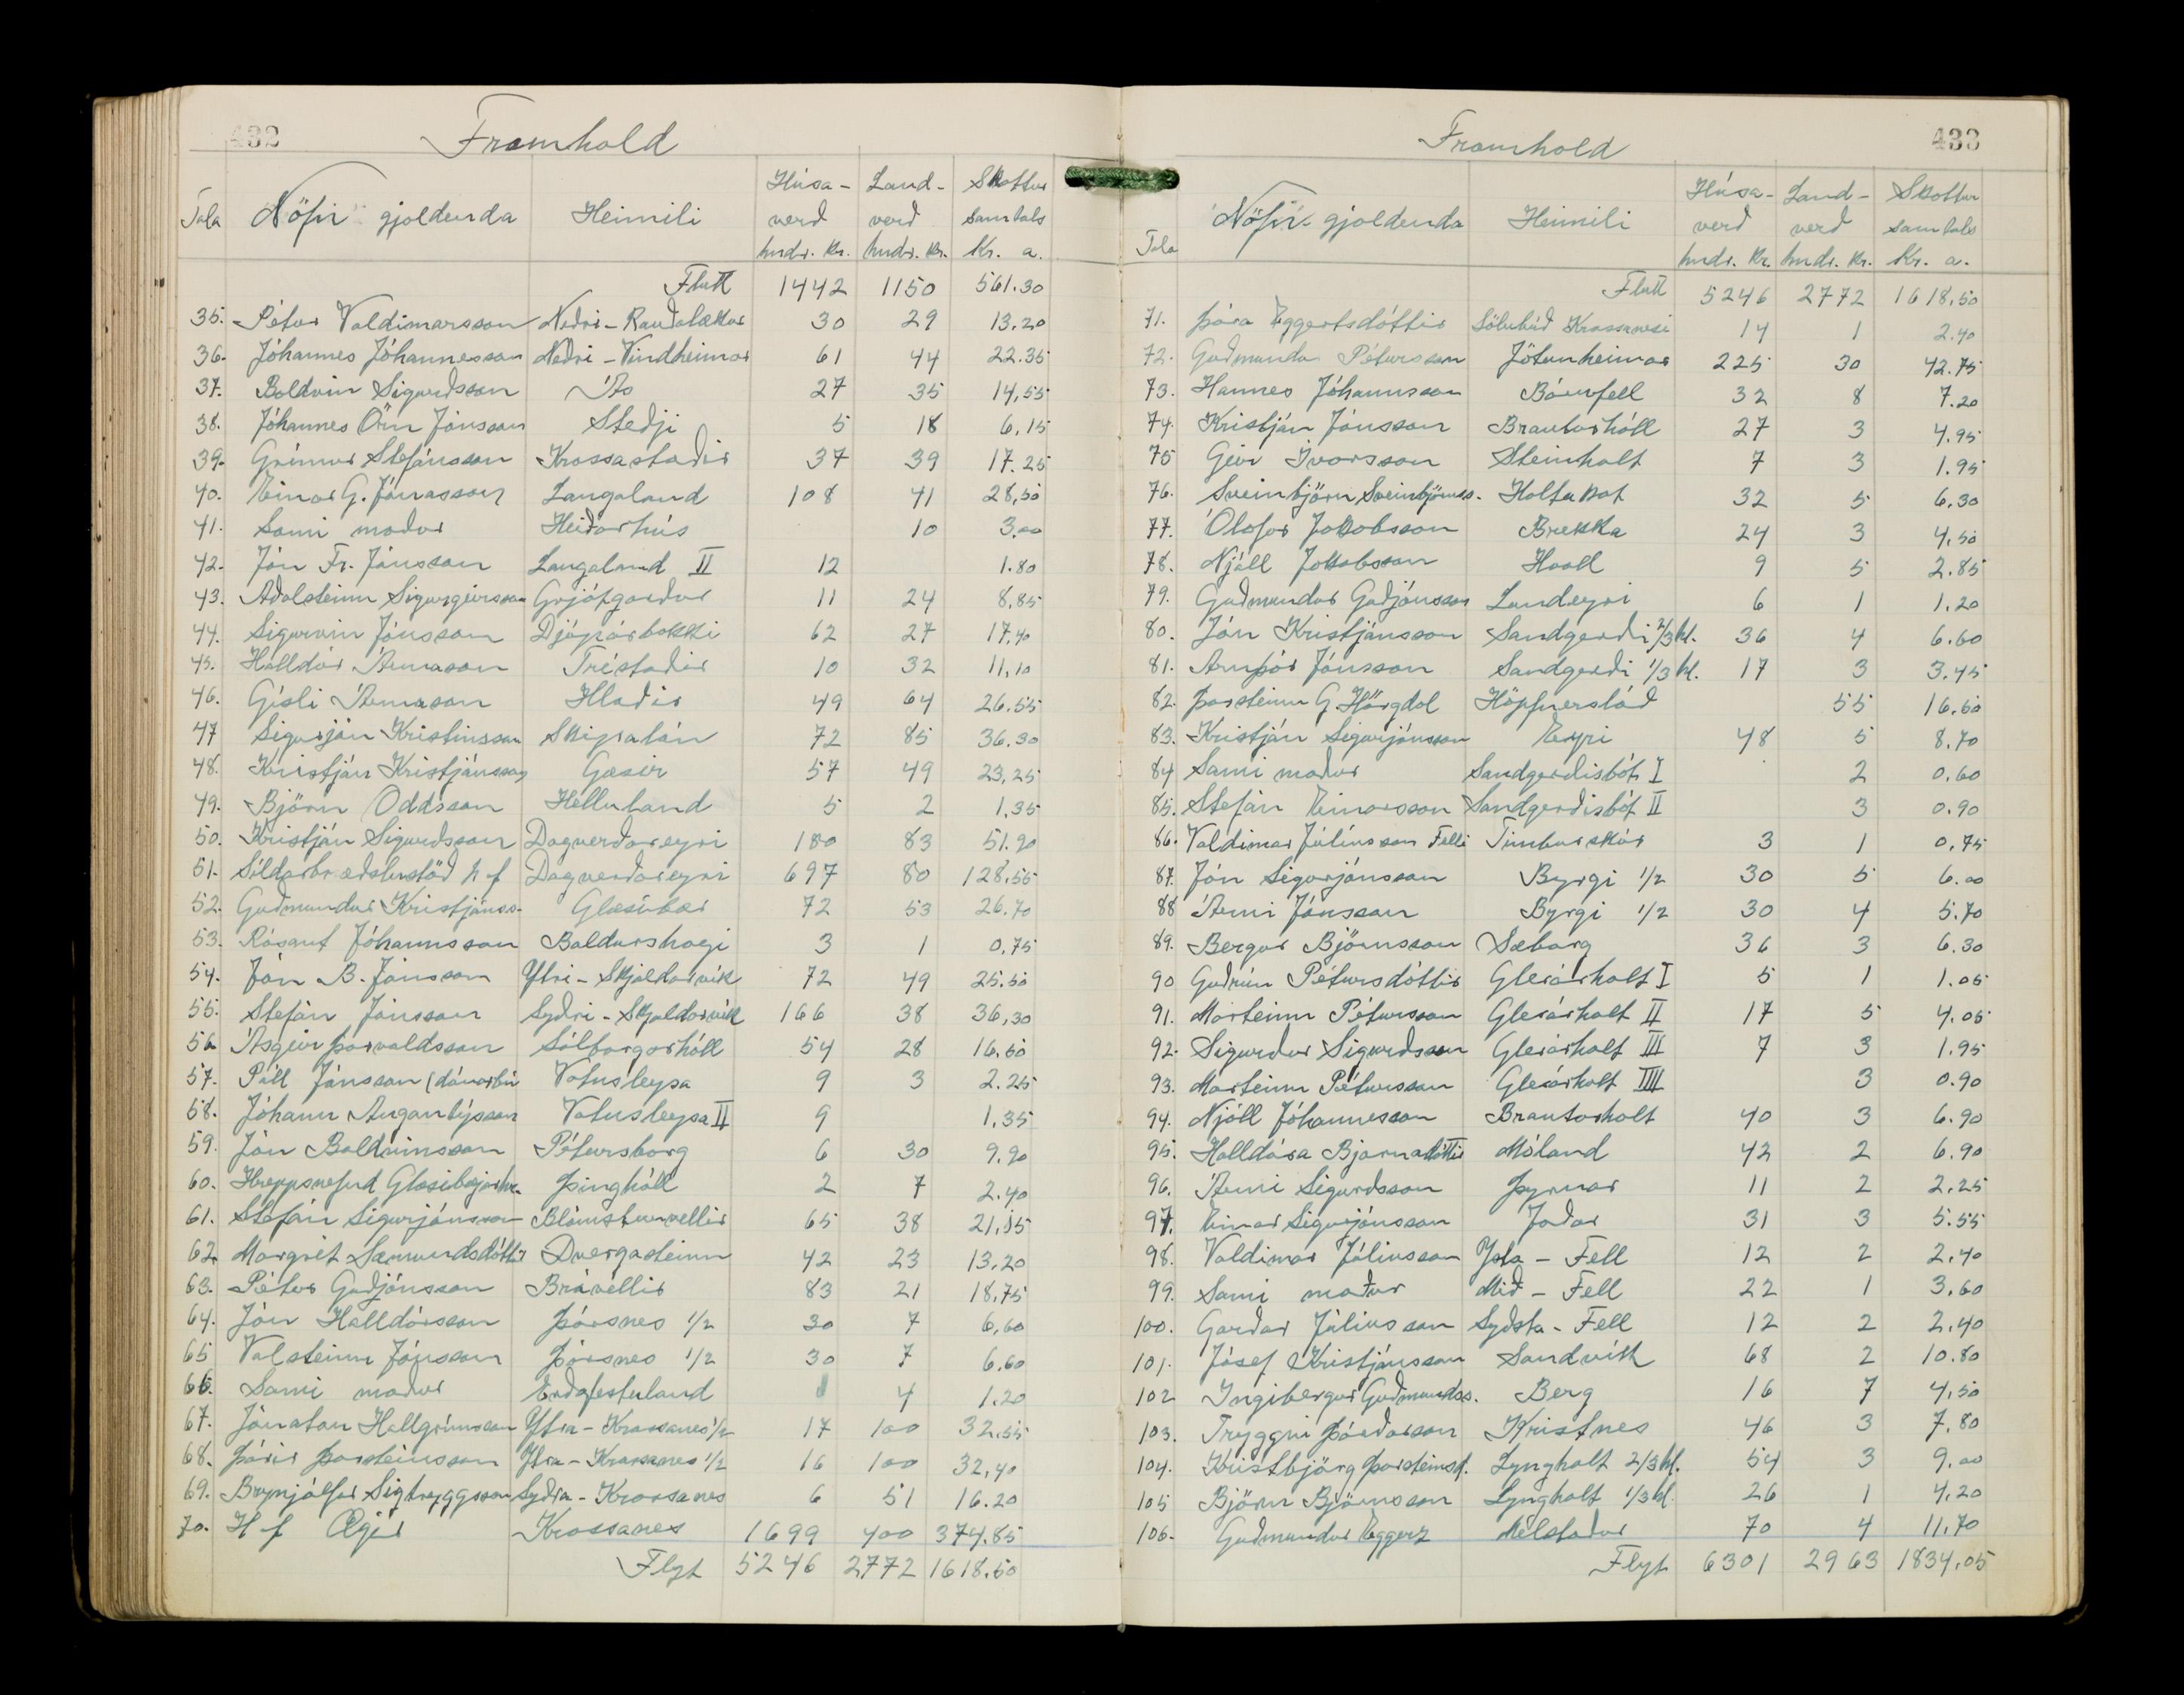 432
Framhald
Tala Nöfn gjaldenda Heimili Húsa-verð hndr. kr. Land-verð hndr. kr. Skattur samtals Kr. a.
Flutt 1442 1150 561.30
35. Pétur Valdimarsson Neðri-Rauðalækur 30 29 13,20
36. Jóhannes Jóhannesson Neðri-Vindheimar 61 44 22.35
37. Baldvin Sigurðsson Ás 27 35 14,55
38. Jóhannes Örn Jónsson Steðji 5 18 6,15
39. Grímur Stefánsson Krossastaðir 37 39 17.25
40. Einar G. Jónasson Laugaland 108 41 28,50
41. Sami maður Heiðarhús 10 3.00
42. Jón Fr. Jónsson Laugaland II 12 1.80
43. Aðalsteinn Sigurgeirsson Grjótgarður 11 24 8,85
44. Sigurvin Jónsson Djúpárbakki 62 27 17,40
45. Halldór Árnason Tréstaðir 10 32 11,10
46. Gísli Árnason Hlaðir 49 64 26.55
47 Sigurjón Kristinsson Skipalón 72 85 36.30
48. Kristján Kristjánsson Gæsir 57 49 23,25
49. Björn Oddsson Helluland 5 2 1,35
50. Kristján Sigurðsson Dagverðareyri 180 83 51.90
51. Síldarbræðslustöð h f Dagverðareyri 697 80 128,55
52. Guðmundur Kristjánss. Glæsibær 72 53 26.70
53. Rósant Jóhannsson Baldurshagi 3 1 0,75
54. Jón B. Jónsson Ytri-Skjaldarvík 72 49 25.50
55. Stefán Jónsson Syðri-Skjaldarvík 166 38 36,30
56 Ásgeir Þorvaldsson Sólborgarhóll 54 28 16.50
57. Páll Jónsson (dánarbú Vatnsleysa 9 3 2.25
58. Jóhann Angantýsson Vatnsleysa II 9 1,35
59. Jón Baldvinsson Pétursborg 6 30 9.90
60. Hreppsnefnd Glæsibæjarhr. Þinghóll 2 7 2.40
61. Stefán Sigurjónsson Blómsturvellir 65 38 21,15
62. Margrét Sæmundsdóttir Dvergasteinn 42 23 13,20
63. Pétur Guðjónsson Brávellir 83 21 18,75
64. Jón Halldórsson Þórsnes 1/2 30 7 6,60
65 Valsteinn Jónsson Þórsnes 1/2 30 7 6.60
66. Sami maður Erðafestuland 4 1.20
67. Jónatan Hallgrímsson Ytra-Krossanes 1/2 17 100 32,55
68. Þórir Þorsteinsson Ytra-Krossanes 1/2 16 100 32,40
69. Brynjólfur Sigtryggsson Syðra-Krossanes 6 51 16.20
70. H f Ægir Krossanes 1699 400 374.85
Flyt 5246 2772 1618.50
Framhald
433
Tala Nöfn gjaldenda Heimili Húsa-verð hndr. kr. Land-verð hndr. kr. Skattur samtals Kr. a.
Flutt 5246 2772 1618,50
71. Þóra Eggertsdóttir Sölubúð Krossanesi 14 1 2.40
72. Guðmundur Pétursson Jötunheimar 225 30 42.75
73. Hannes Jóhannsson Bárufell 32 8 7.20
74. Kristján Jónsson Brautarhóll 27 3 4.95
75 Geir Ívarsson Steinholt 7 3 1.95
76. Sveinbjörn Sveinbjörnss. Holtakot 32 5 6,30
77. Ólafur Jakobsson Brekka 24 3 4,50
78. Njáll Jakobsson Hvoll 9 5 2.85
79. Guðmundur Guðjónsson Lundeyri 6 1 1,20
80. Jón Kristjánsson Sandgerði 2/3 hl. 36 4 6.60
81. Arnþór Jónsson Sandgerði 1/3 hl. 17 3 3.45
82. Þorsteinn G. Hörgdal Höpfnerslóð 55 16.50
83. Kristján Sigurjónsson Eyri 48 5 8.70
84 Sami maður Sandgerðisbót I 2 0.60
85. Stefán Einarsson Sandgerðisbót II 3 0.90
86. Valdimar Júlíusson Felli Timburskúr 3 1 0,75
87. Jón Sigurjónsson Byrgi 1/2 30 5 6.00
88 Árni Jónsson Byrgi 1/2 30 4 5.70
89. Bergur Björnsson Sæborg 36 3 6.30
90 Guðrún Pétursdóttir Glerárholt I 5 1 1.05
91. Marteinn Pétursson Glerárholt II 17 5 4.05
92. Sigurður Sigurðsson Glerárholt III 7 3 1.95
93. Marteinn Pétursson Glerárholt IIII 3 0.90
94. Njáll Jóhannesson Brautarholt 40 3 6.90
95. Halldóra Bjarnadóttir Móland 42 2 6.90
96. Árni Sigurðsson Þyrnar 11 2 2,25
97. Einar Sigurjónsson Jaðar 31 3 5.55
98. Valdimar Júlíusson Ysta-Fell 12 2 2,40
99. Sami maður Mið-Fell 22 1 3,60
100. Garðar Júlíusson Syðsta-Fell 12 2 2,40
101. Jósef Kristjánsson Sandvík 68 2 10.80
102 Ingibergur Guðmundss. Berg 16 7 4,50
103. Tryggvi Þórðarson Kristnes 46 3 7.80
104. Kristbjörg Þorsteinsd. Lyngholt 2/3 hl. 54 3 9.00
105 Björn Björnsson Lyngholt 1/3 hl. 26 1 4,20
106. Guðmundur Eggerz Mélstaður 70 4 11,70
Flyt 6301 2963 1834,05